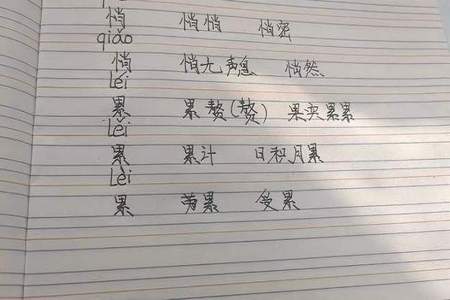 悄 悄悄 悄密
qiǎo
悄 悄无声息 悄然
léi
累 累赘(赘) 果实累累
lěi
累 累计 日积月累
lèi
累 劳累 受累